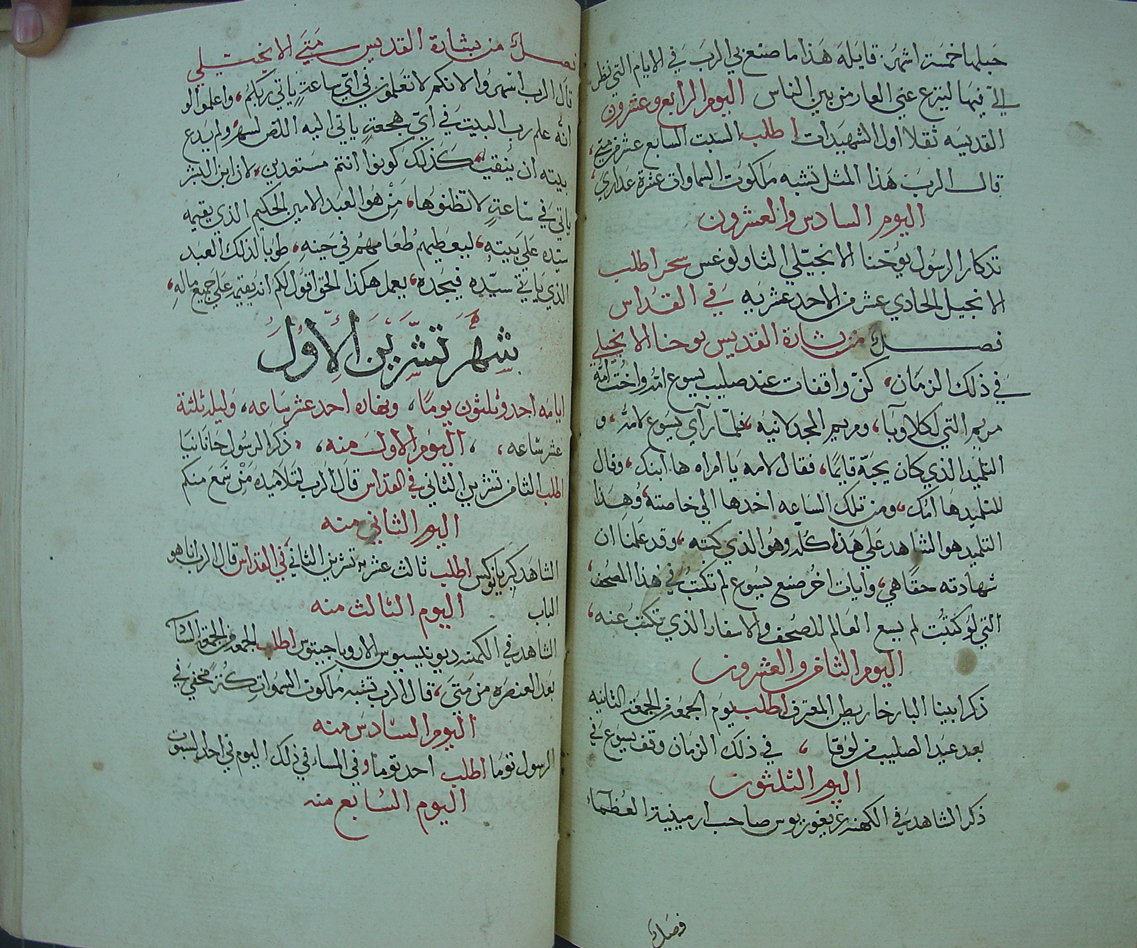 حبلها خمسة اشهر. قايلة هذا ما صنع بي الرب في الايام التي نظر
اليّ فيها لينزع عني العار من بين الناس اليوم الرابع وعشرون
القديسه تقلا اول الشهيدات اطلب السبت السابع عشر من متي
قال الرب هذا المثل تشبه ملكوت السماوات عشرة عداري
اليوم السادس والعشرون
تدكار الرسول يوحنا الانجيلي التاولوغس سحر اطلب
الانجيل الحادي عشر من الاحد عشريه في القداس
فصل من بشارة القديس يوحنا الانجيلي
في ذلك الزمان، كن واقفات عند صليب يسوع امه واخت امه
مريم التي لكلاوبا، ومريم المجدلانيه، فلما راي يسوع لامه، و
التلميد الذي كان يحبه قايمًا، فقال لامه يا امراه ها ابنك، وقال
للتلميد ها امك، ومن تلك الساعه اخدها الي خاصته، وهذا
التلميد هو الشاهد علي هذا كله وهو الذي كتبه، وقد علمنا ان
شهادته حقًا هي، وايات اخر صنع يسوع لم تكتب في هذا المصحف
التي لو كتبت لم يسع العالم للصحف والاسفار الذي تكتب عنه،
اليوم الثامن والعشرون
ذكر ابينا البار خاريطن المعترف اطلب يوم الجمعه من الجمعة الثانيه
بعد عيد الصليب من لوقا، في ذلك الزمان وقف يسوع في
اليوم الثلثون
ذكر الشاهد في الكهنه غريغوريوس صاحب ارمينية العظماء
فصل
فصل من بشارة القديس متي الانجيلي
قال الرب اسهروا لانكم لا تعلمون في اي ساعة ياتي ربكم، واعلموا لو
انه علم رب البيت في اي هجعة ياتي اليه اللص لسهر ولم يدع
بيته ان ينقب، كذلك كونوا انتم مستعدين، لان ابن البشر
ياتي في ساعة لا تظنوها، من هو العبد الامين الحكيم الذي يقيمه
سيده علي بيته، ليعطيهم طعامهم في حينه، طوبا لذلك العبد
الذي ياتي سيده فيجده، يعمل هكذا الحق اقول لكم انه يقيمه علي جميع ماله،
شهر تشرين الاول
ايامه احد وثلثون يومًا، ونهاره احد عشر ساعه، وليله ثلثة
عشر ساعه، اليوم الاول منه، ذكر الرسول حانانيا
اطلب الثامن تشرين الثاني في القداس قال الرب لتلاميده من سمع منكم
اليوم الثاني منه
الشاهد كبريانوكس اطلب ثالث عشر من تشرين الثاني في القداس قال الرب انا هو
الباب اليوم الثالث منه
الشاهد في الكهنه ديونيسيوس الاريوباجيتوس اطلب الجمعه من الجمعة
بعد العنصره من متي، قال الرب تشبه ملكوت السموات كنز مخفي في
اليوم السادس منه
الرسول توما اطلب احد توما وفي المساء في ذلك اليوم
اليوم السابع منه